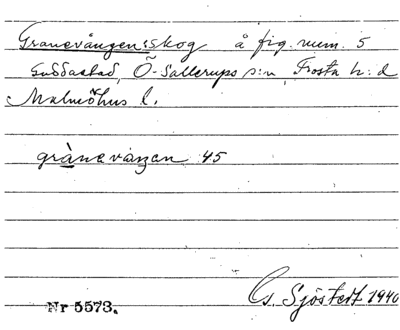 Granevången: skog å fig. num. 5
Ö. Sallerups s:n, Frosta h:d
Malmöhus l.
grànevaŋen 45
Nr 5573.
G. Sjöstedt 1940